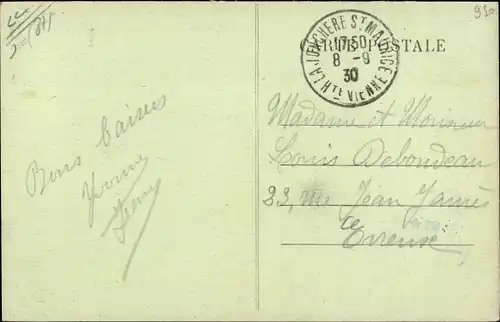 CARTE POSTALE
LA JONCHERE ST MAURICE
17:50
8 - 9
30
HTE VIENNE
Bons baisers
Yvonne
Jean
Madame et Monsieur
Louis Debondeau
23, rue Jean Jaurès
Evreux